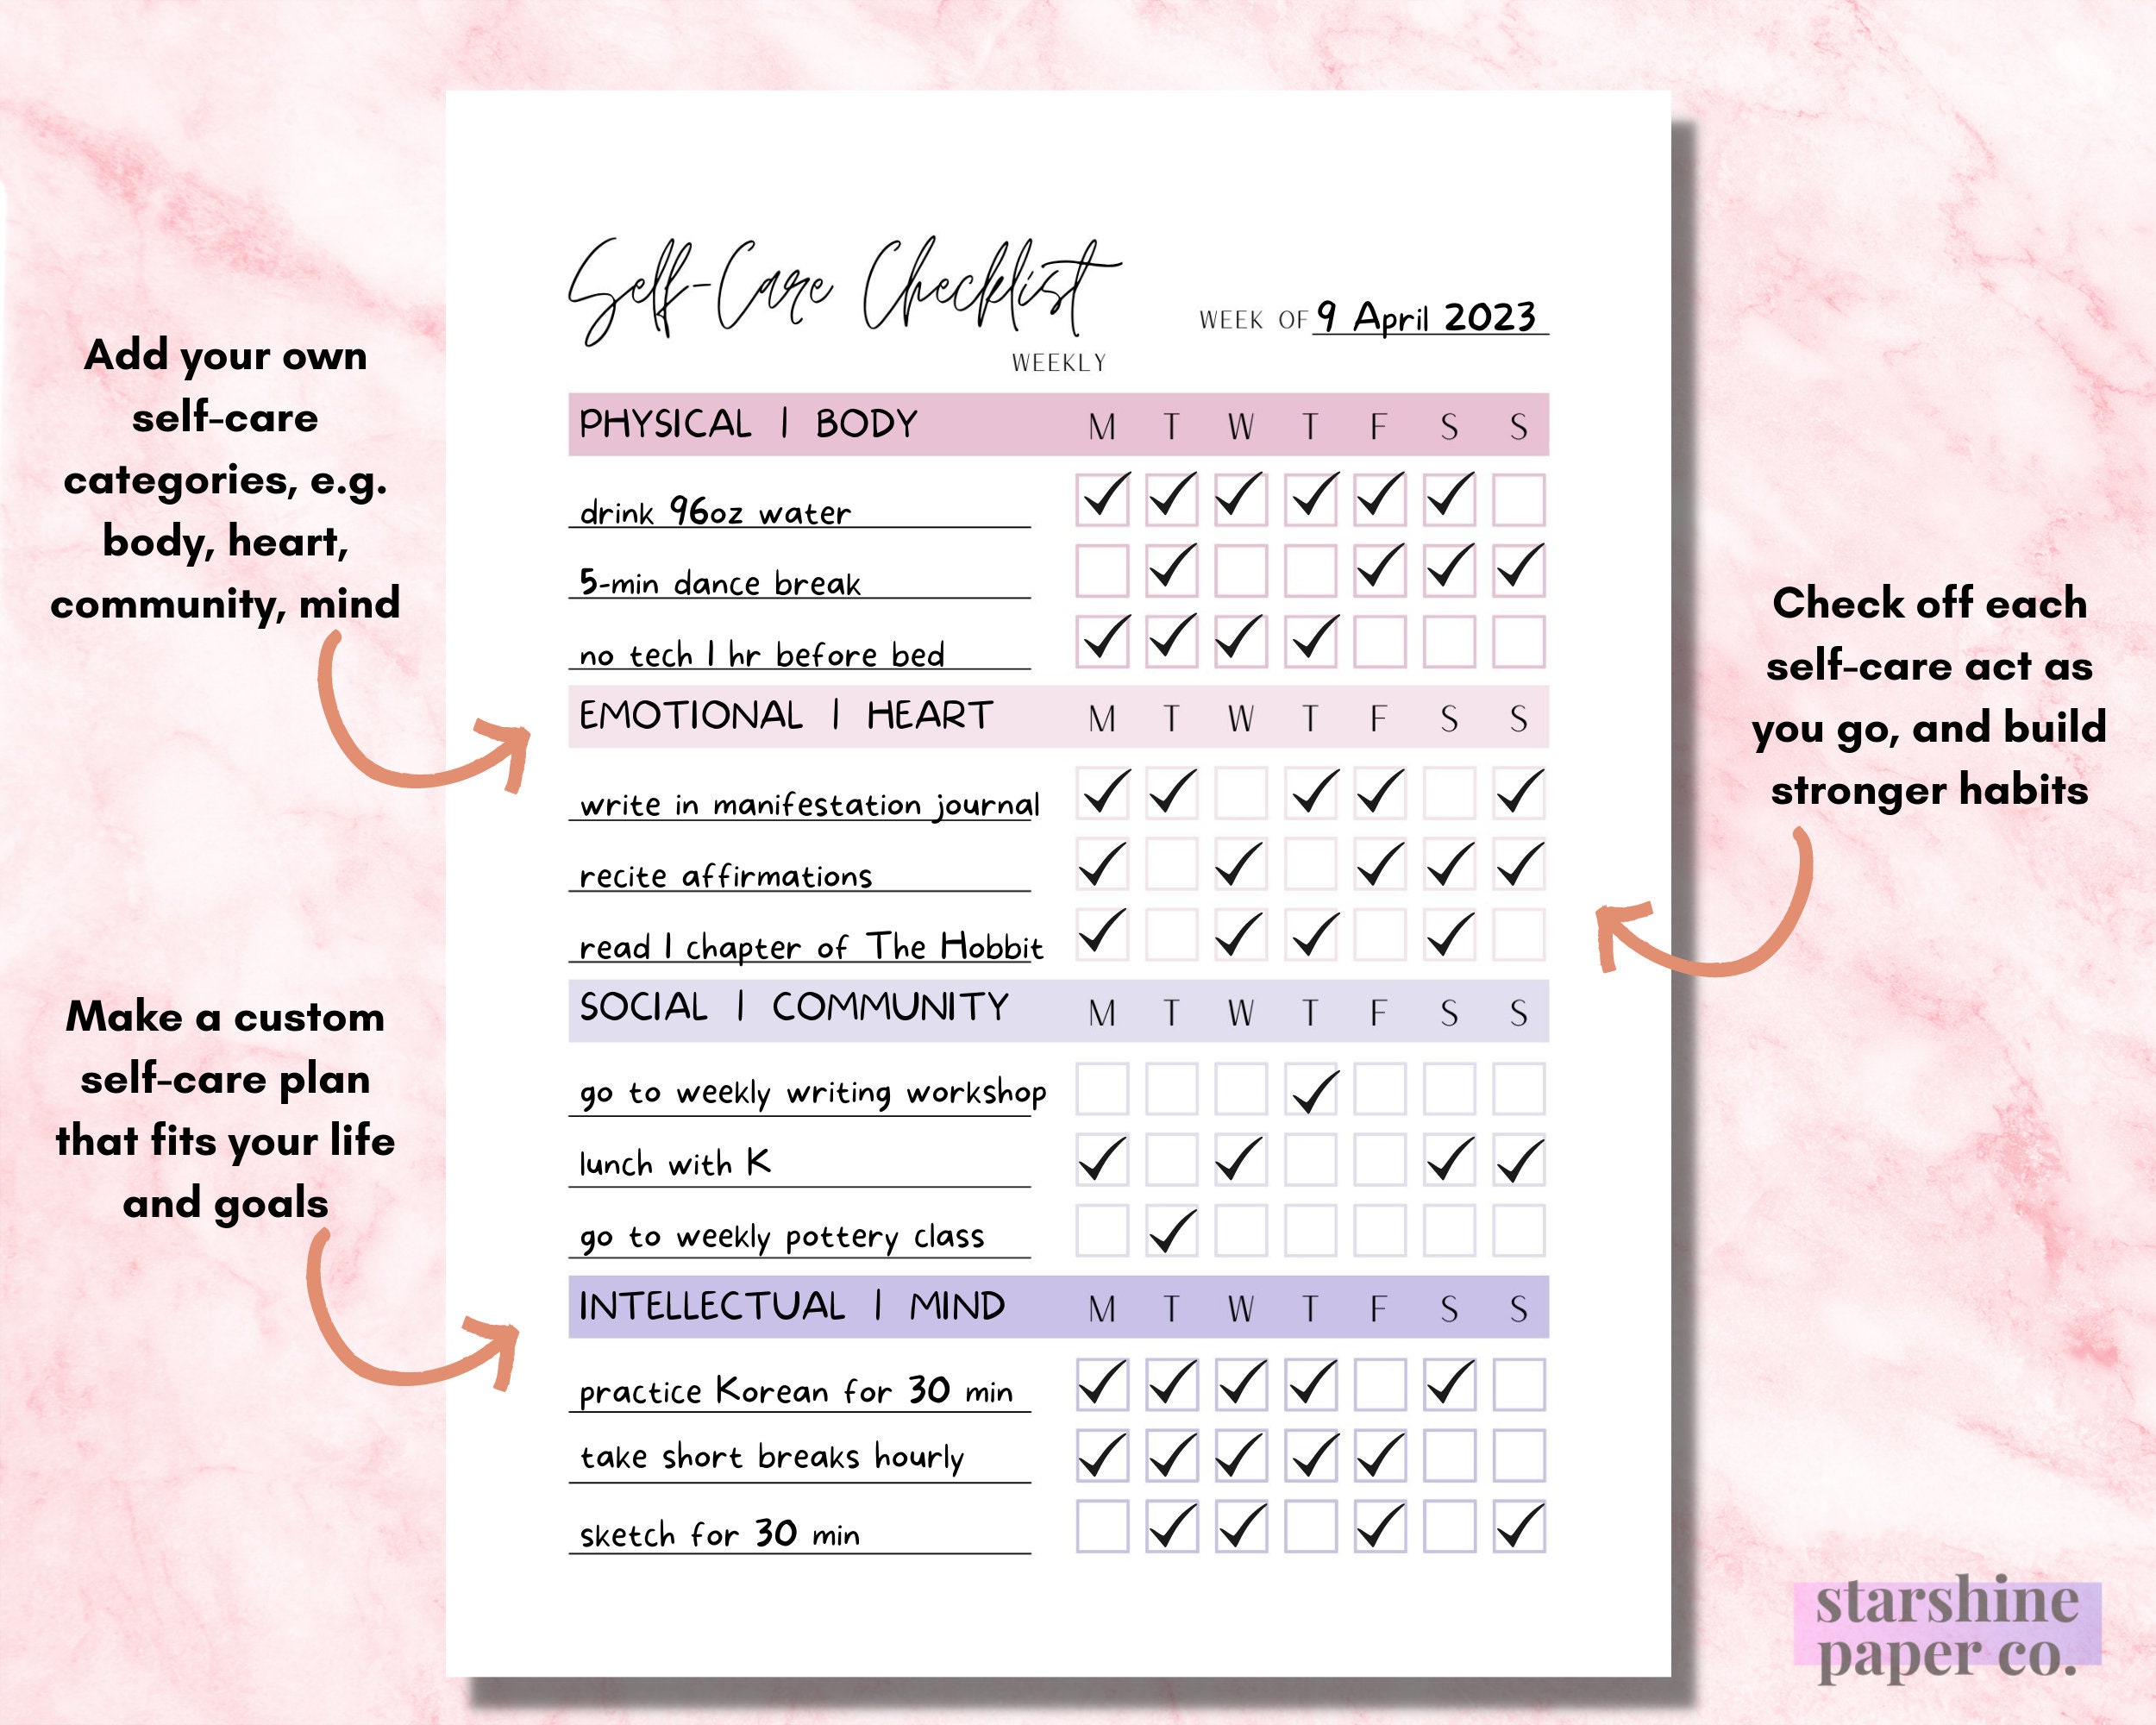 Self-Care Checklist
WEEKLY
WEEK OF 9 April 2023
PHYSICAL | BODY M T W T F S S
drink 96oz water
5-min dance break
no tech 1 hr before bed
EMOTIONAL | HEART M T W T F S S
write in manifestation journal
recite affirmations
read 1 chapter of The Hobbit
SOCIAL | COMMUNITY M T W T F S S
go to weekly writing workshop
lunch with K
go to weekly pottery class
INTELLECTUAL | MIND M T W T F S S
practice Korean for 30 min
take short breaks hourly
sketch for 30 min
Add your own
self-care
categories, e.g.
body, heart,
community, mind
Make a custom
self-care plan
that fits your life
and goals
Check off each
self-care act as
you go, and build
stronger habits
starshine
paper co.